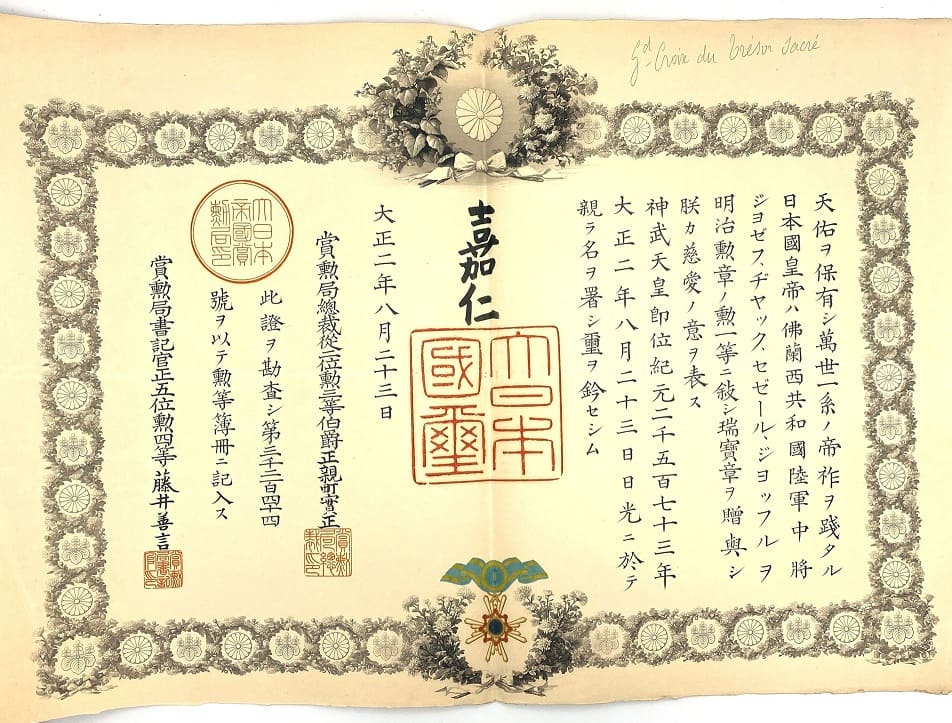 Gd Croix du Trésor Sacré
天佑ヲ保有シ萬世一系ノ帝祚ヲ踐タル
日本國皇帝ハ佛蘭西共和國陸軍中將
ジヨゼフ、ヂヤック、セゼール、ジヨッフルヲ
明治勲章ノ勲一等ニ敍シ瑞寶章ヲ贈與シ
朕カ慈愛ノ意ヲ表ス
神武天皇即位紀元二千五百七十三年
大正二年八月二十三日日光ニ於テ
親ラ名ヲ署シ璽ヲ鈐セシム
嘉仁
大日本
國璽
大正二年八月二十三日
賞勲局總裁從二位勲三等伯爵正親町實正
此證ヲ勘査シ第三千二百四十四
號ヲ以テ勲等簿冊ニ記入ス
大日本
帝國賞
勲局印
賞勲局書記官正五位勲四等藤井善言